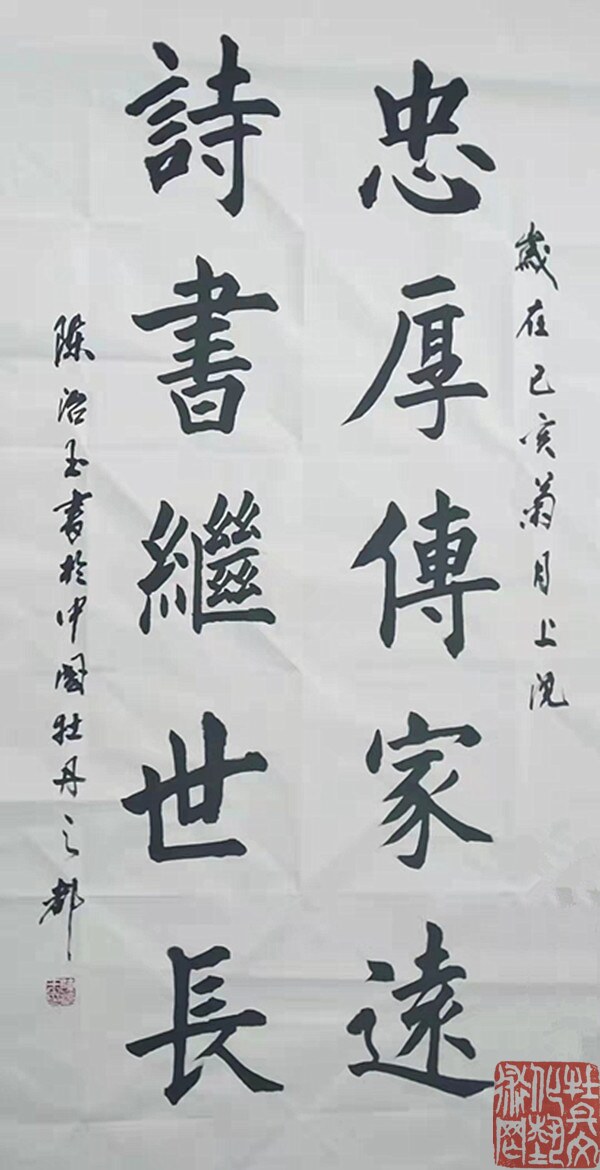 歲在己亥菊月上浣
忠厚傳家遠
詩書繼世長
陈治玉書於中國牡丹之都
牡丹文
化藝